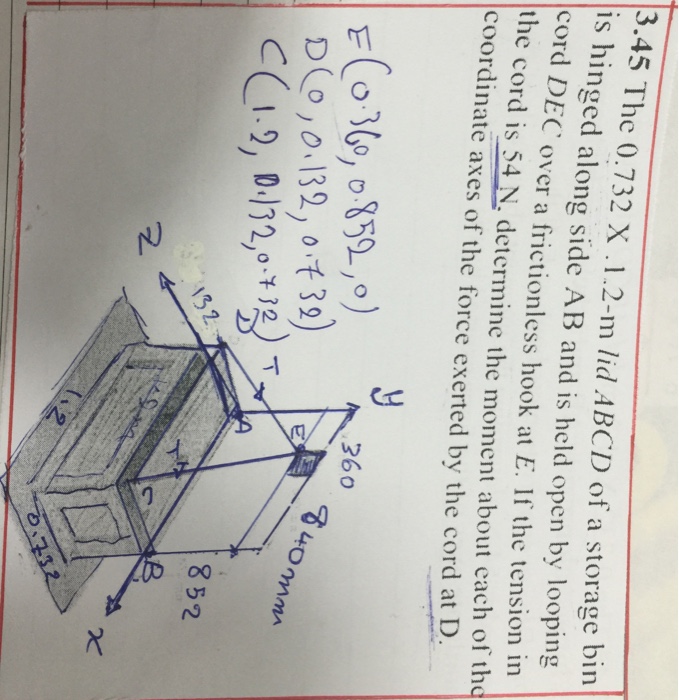 3.45 The 0.732 X .1.2-m lid ABCD of a storage bin
is hinged along side AB and is held open by looping
cord DEC over a frictionless hook at E. If the tension in
the cord is 54 N, determine the moment about each of the
coordinate axes of the force exerted by the cord at D.
E(0.360,0.852,0)
D(0,0.132,0.732)
C(1.2,0.132,0.732)
y
360
840mm
E
T
D
132
Z
A
T
C
B
852
x
1.2
0.732